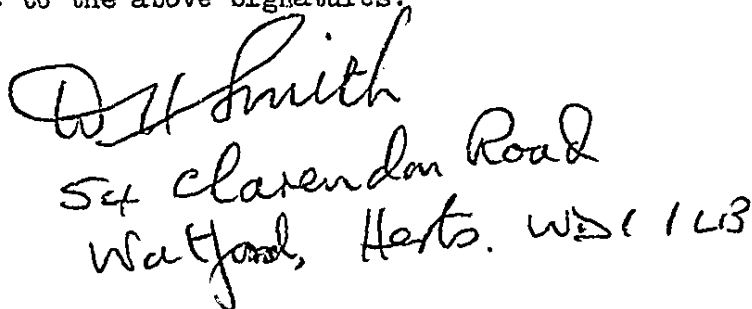 to the above signatures.
W H Smith
54 Clarendon Road
Watford, Herts. WD1 1LB